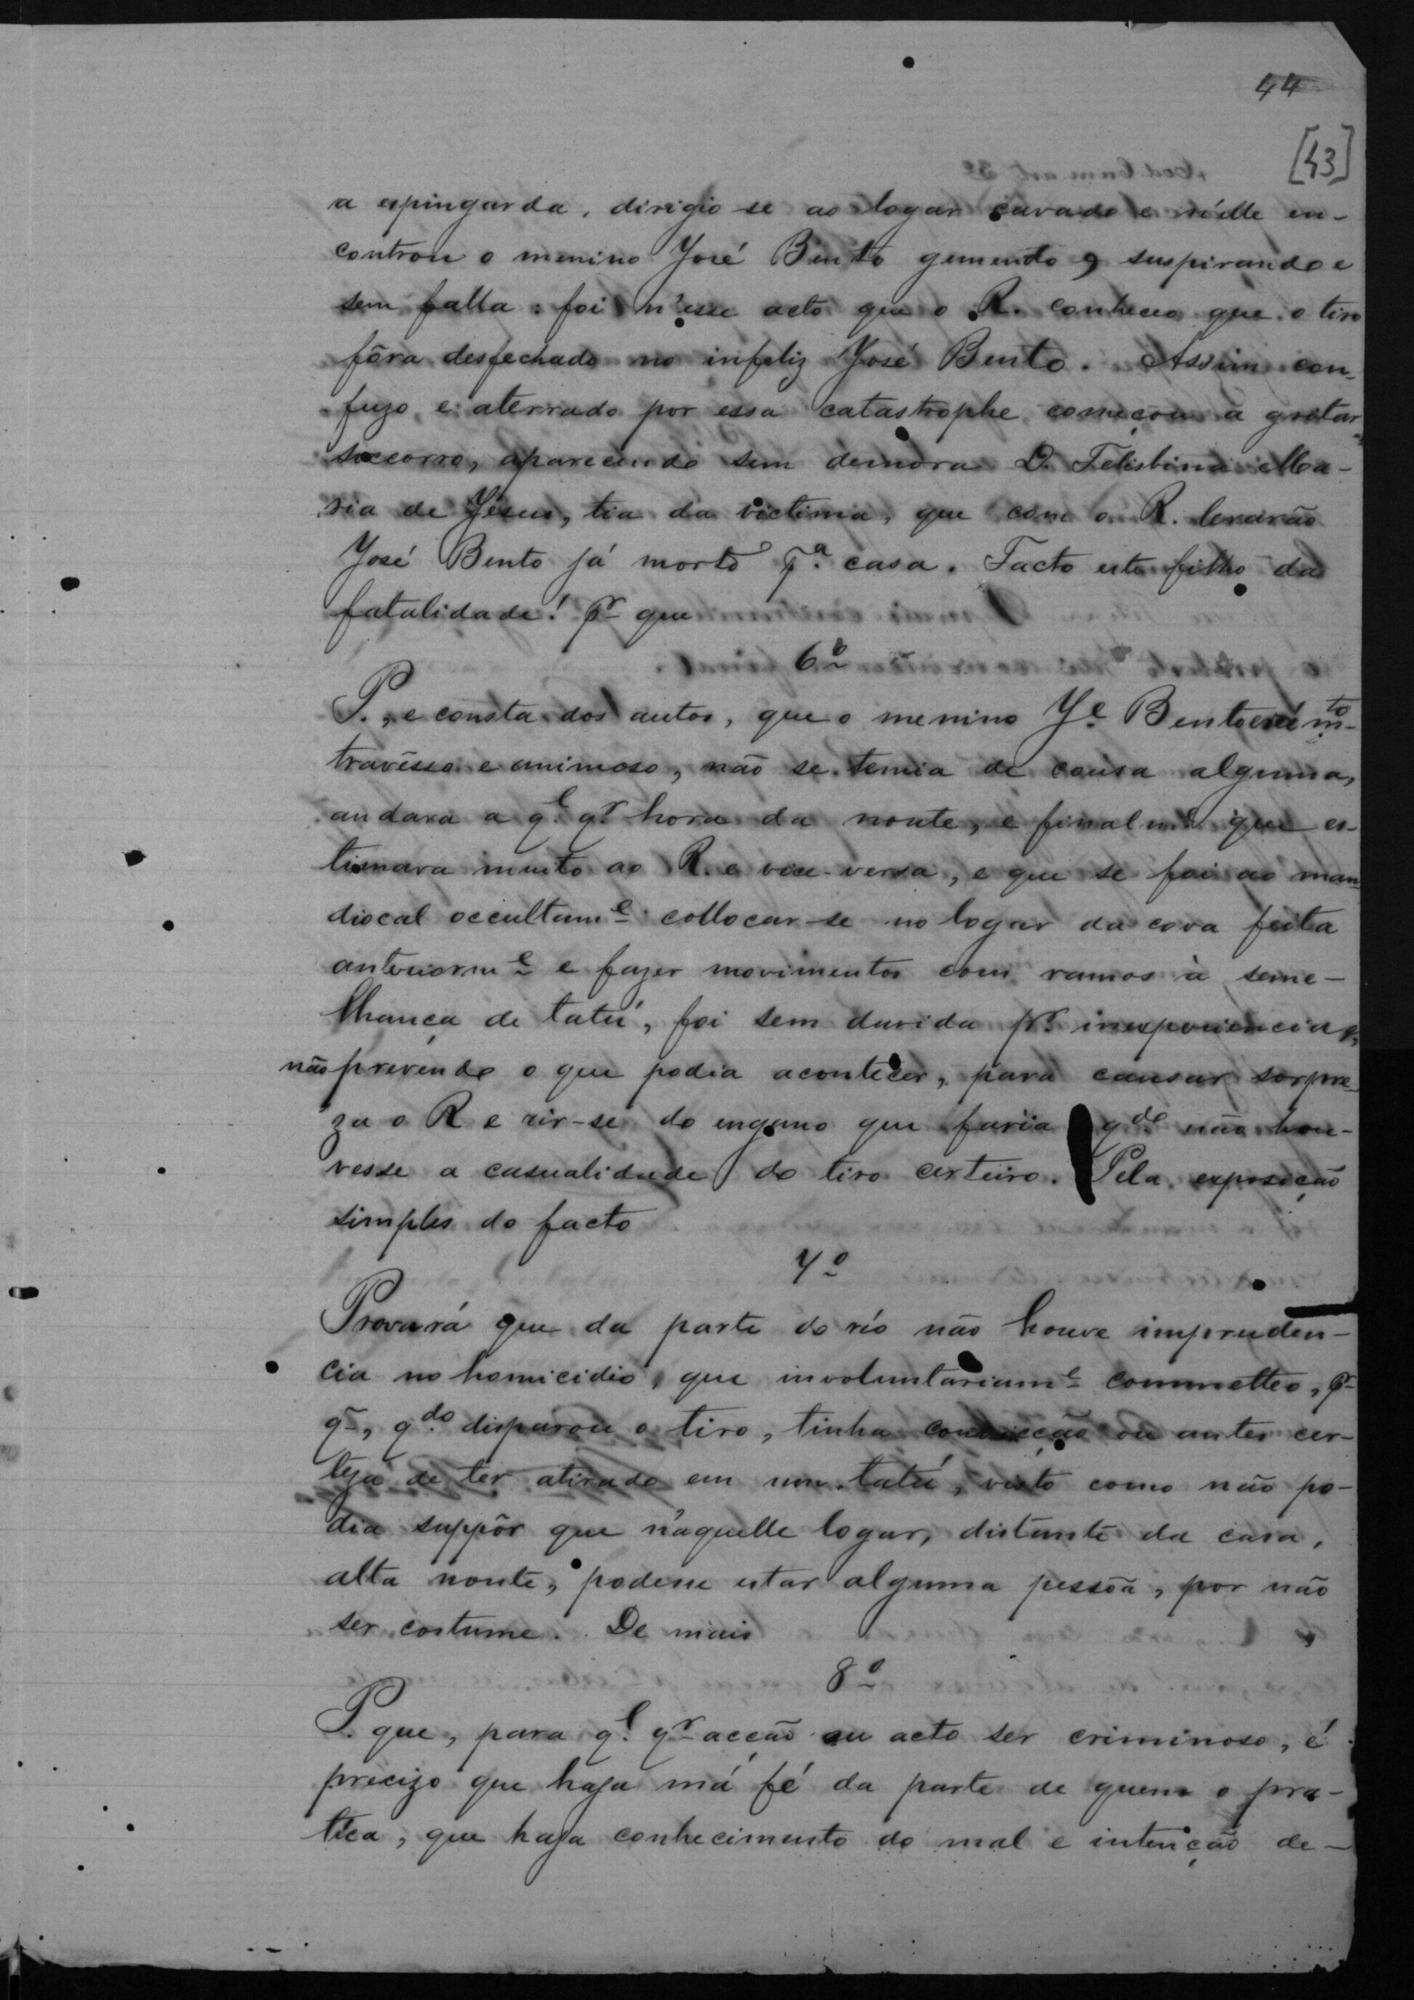 44
[43]
a espingarda, dirigio-se ao logar cavado e n'elle en-
controu o menino José Bento gemendo e suspirando e
sem falla: foi n'esse acto que o R. conheceo que o tiro
fôra desfechado no infeliz José Bento. Assim con-
fuzo e aterrado por essa catastrophe começou a gritar
soccorro, aparecendo sem demora D. Felisbina Ma-
ria de Jesus, tia da victima, que com o R. levarão
José Bento já morto pª casa. Facto este filho da
fatalidade! Pr que
6º
P., e consta dos autos, que o menino Je Bento era mto
travêsso e animoso, não se temia de cousa alguma,
andava a ql qr hora da noute, e finalme que es-
timava muito ao R. e vice-versa, e que se foi ao man
diocal occultame collocar-se no logar da cova feita
anteriorme e fazer movimentos com ramos à seme-
lhança de tatú, foi sem duvida pr inexperiencia,
não prevendo o que podia acontecer, para causar sorpre-
za o R e rir-se do engano que faria qdo não hou-
vesse a casualidade do tiro certeiro. Pela exposição
simples do facto
7º
Provará que da parte do réo não houve impruden-
cia no homicidio, que involuntariame commetteo, Pr
q̃, qdo disparou o tiro, tinha convicção ou antes cer-
teza de ter atirado em um tatú, visto como não po-
dia suppôr que n'aquelle logar, distante da casa,
alta noute, podesse estar alguma pessôa, por não
ser costume. De mais
8º
P. que, para ql qr acção ou acto ser criminoso, é
precizo que haja má fé da parte de quem o pra-
tica, que haja conhecimento do mal e intenção de-